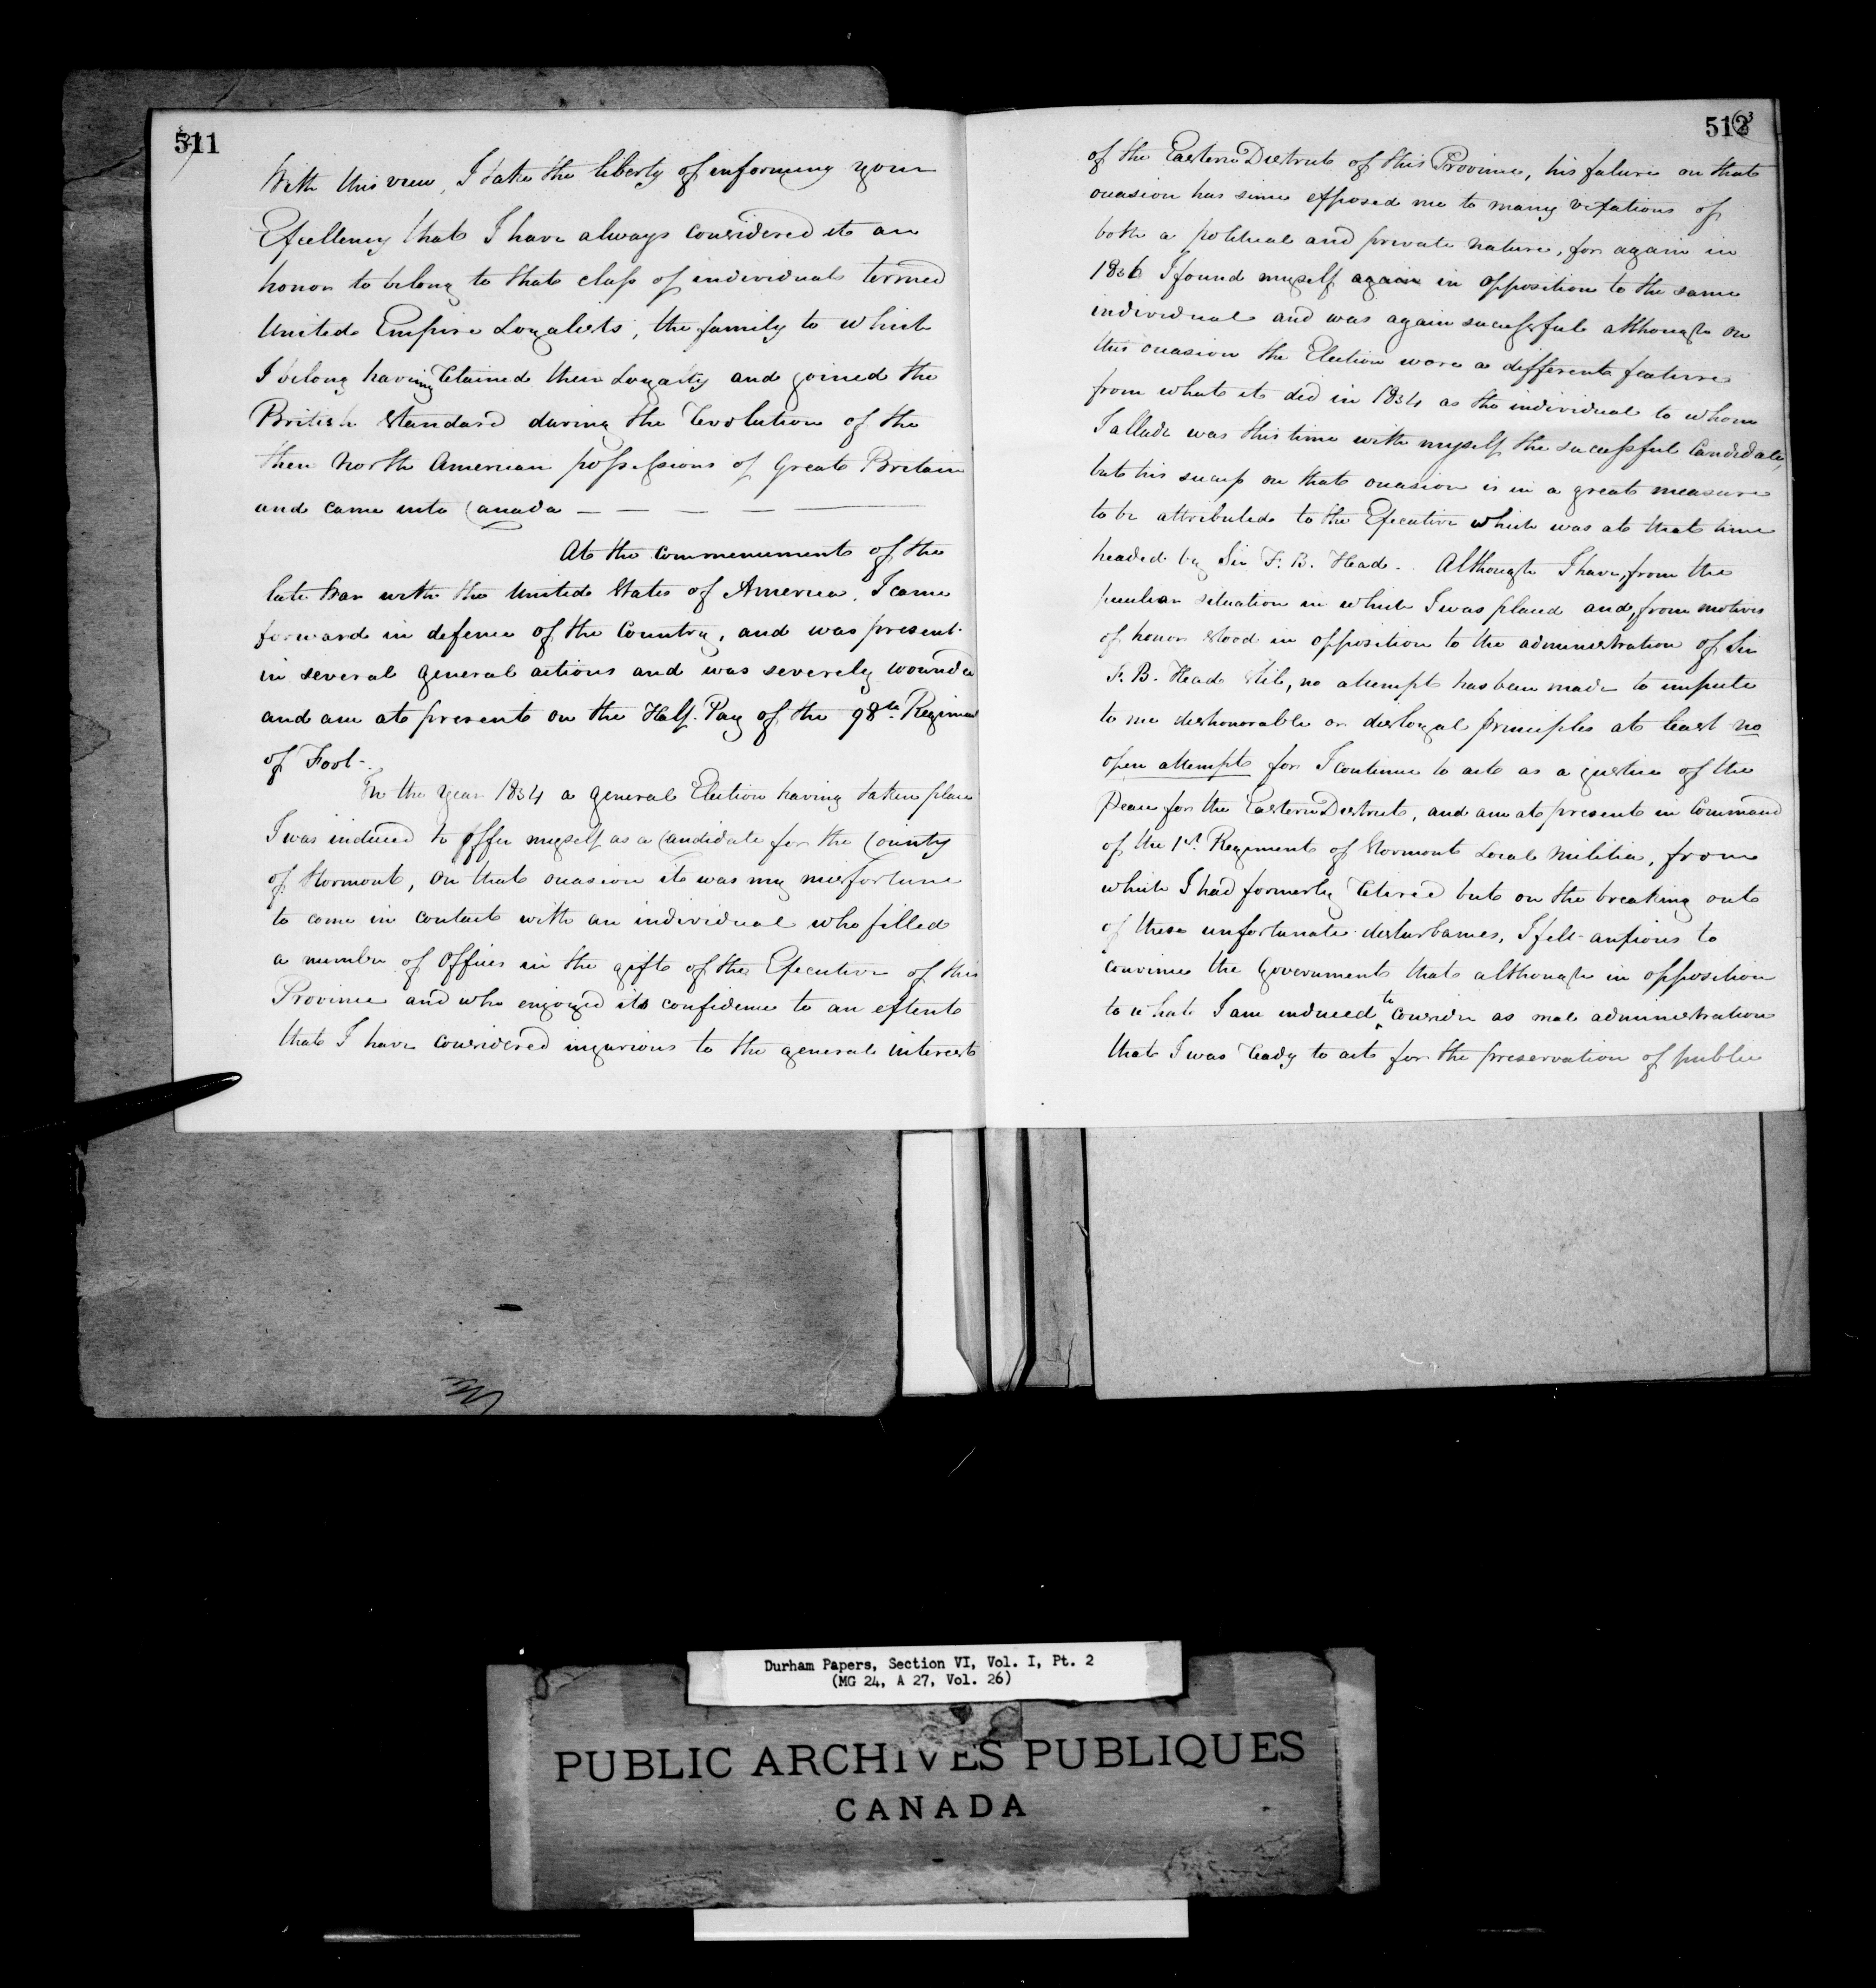 511
With this view, I take the liberty of informing your
Excellency that I have always considered it an
honor to belong to that class of individuals termed
United Empire Loyalists, the family to which
I belong having retained their Loyalty and joined the
British Standard during the revolution of the
then North American possessions of Great Britain
and came into Canada — — — —
At the commencement of the
late War with the United States of America, I came
forward in defence of the Country, and was present
in several general actions and was severely wounded
and am at present on the Half Pay of the 98th Regiment
of Foot.
In the year 1834 a general Election having taken place
I was induced to offer myself as a Candidate for the County
of Stormont, on that occasion it was my misfortune
to come in contact with an individual who filled
a number of offices in the gift of the Executive of this
Province and who enjoyed its confidence to an extent
that I have considered injurious to the general interests
512
of the Eastern District of this Province, his failure on that
occasion has since exposed me to many vexations of
both a political and private nature, for again in
1836 I found myself again in opposition to the same
individual and was again successful although on
this occasion the Election wore a different feature
from what it did in 1834 as the individual to whom
I allude was this time with myself the successful Candidate,
but his success on that occasion is in a great measure
to be attributed to the Executive which was at that time
headed by Sir F. B. Head. Although I have, from the
peculiar situation in which I was placed and, from motives
of honor stood in opposition to the administration of Sir
F. B. Head Still, no attempt has been made to impute
to me dishonorable or disloyal principles at least no
open attempt for I continue to act as a justice of the
Peace for the Eastern District, and am at present in Command
of the 1st Regiment of Stormont Local Militia, from
which I had formerly retired but on the breaking out
of these unfortunate disturbances, I felt anxious to
convince the Government that although in opposition
to what I am induced to consider as mal administration
that I was ready to act for the preservation of public
Durham Papers, Section VI, Vol. I, Pt. 2
(MG 24, A 27, Vol. 26)
PUBLIC ARCHIVES PUBLIQUES
CANADA